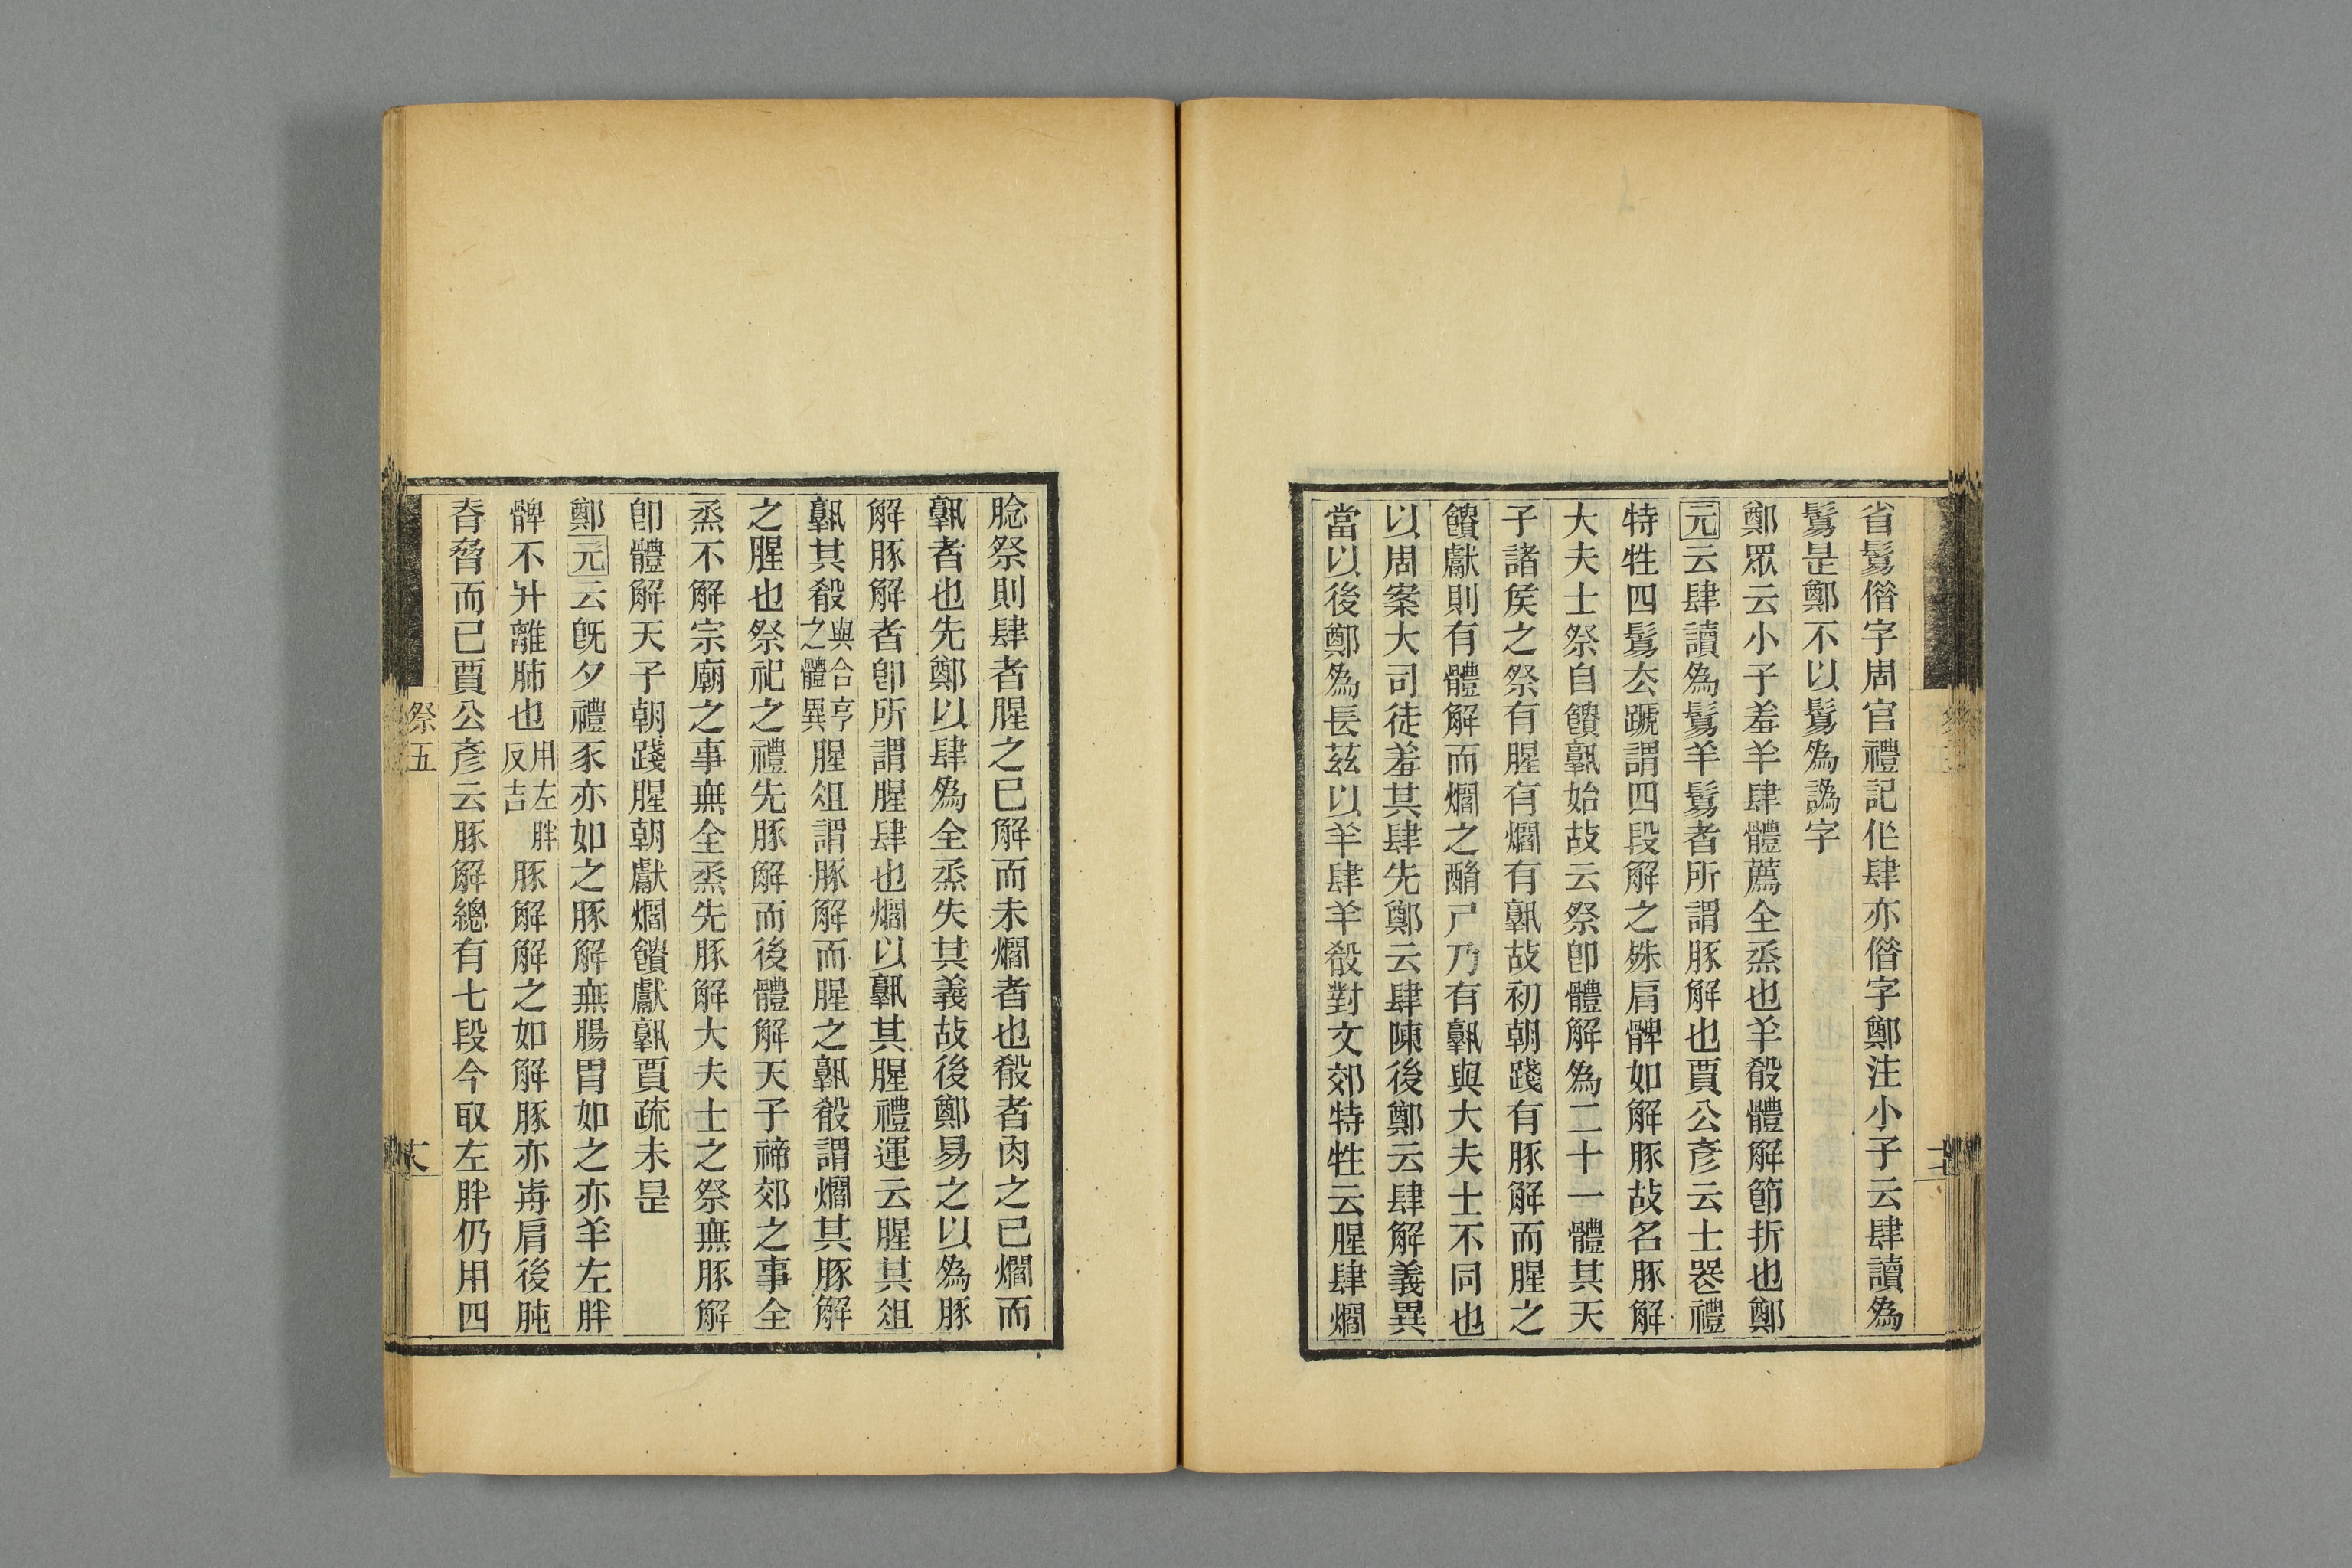 省鬄偺字周官禮記作肆亦偺字鄭注小子云肆讀爲
鬄是鄭不以鬄爲譌字
鄭眾云小子羞羊肆體薦全烝也羊殽體解節折也鄭
元云肆讀爲鬄羊鬄者所謂豚解也賈公彥云士喪禮
特牲四鬄去蹏謂四段解之殊肩髀如解豚故名豚解
大夫士祭自饋孰始故云祭卽體解爲二十一體其天
子諸矦之祭有腥有爓有孰故初朝踐有豚解而腥之
饋獻則有體解而爓之酳尸乃有孰與大夫士不同也
以周案大司徒羞其肆先鄭云肆陳後鄭云肆解義異
當以後鄭爲長茲以羊肆羊殽對文郊特牲云腥肆爓
腍祭則肆者腥之已解而未爓者也殽者肉之已爓而
孰者也先鄭以肆爲全烝失其義故後鄭易之以爲豚
解豚解者卽所謂腥肆也爓以孰其腥禮運云腥其俎
孰其殽與合亨之體異腥俎謂豚解而腥之孰殽謂爓其豚解
之腥也祭祀之禮先豚解而後體解天子禘郊之事全
烝不解宗廟之事無全烝先豚解大夫士之祭無豚解
卽體解天子朝踐腥朝獻爓饋獻孰賈疏未是
鄭元云旣夕禮豕亦如之豚解無腸胃如之亦羊左胖
髀不升離肺也用左胖反吉豚解解之如解豚亦歬肩後肫
脊脅而已賈公彥云豚解總有七段今取左胖仍用四
祭五